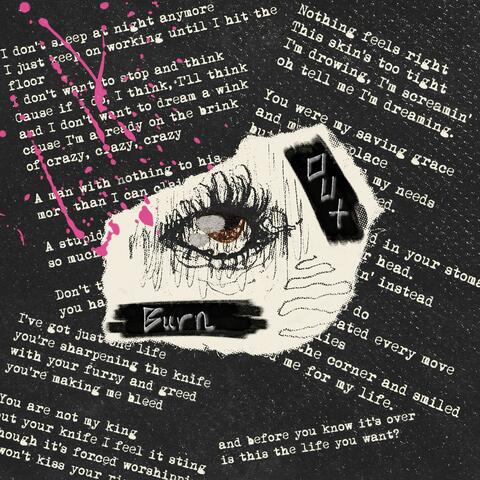 I don't sleep at night anymore
I just keep on working until I hit the
floor
I don't want to stop and think
Cause if I do, I think, I'll think
and I don't want to dream a wink
cause I'm already on the brink
of crazy, crazy, crazy
A man with nothing to his
more than I can
A stupid
so much
Don't
you ha
Nothing feels right
This skin's too tight
I'm drowing, I'm screamin'
oh tell me I'm dreaming.
You were my saving grace
and my place
my needs
in your stoma
head.
n' instead
do
ated every move
lies
the corner and smiled
me for my life.
Out
Burn
I've got just one life
you're sharpening the knife
with your furry and greed
you're making me bleed
You are not my king
but your knife I feel it sting
though it's forced worshippi
won't kiss your ri
and before you know it's over
is this the life you want?